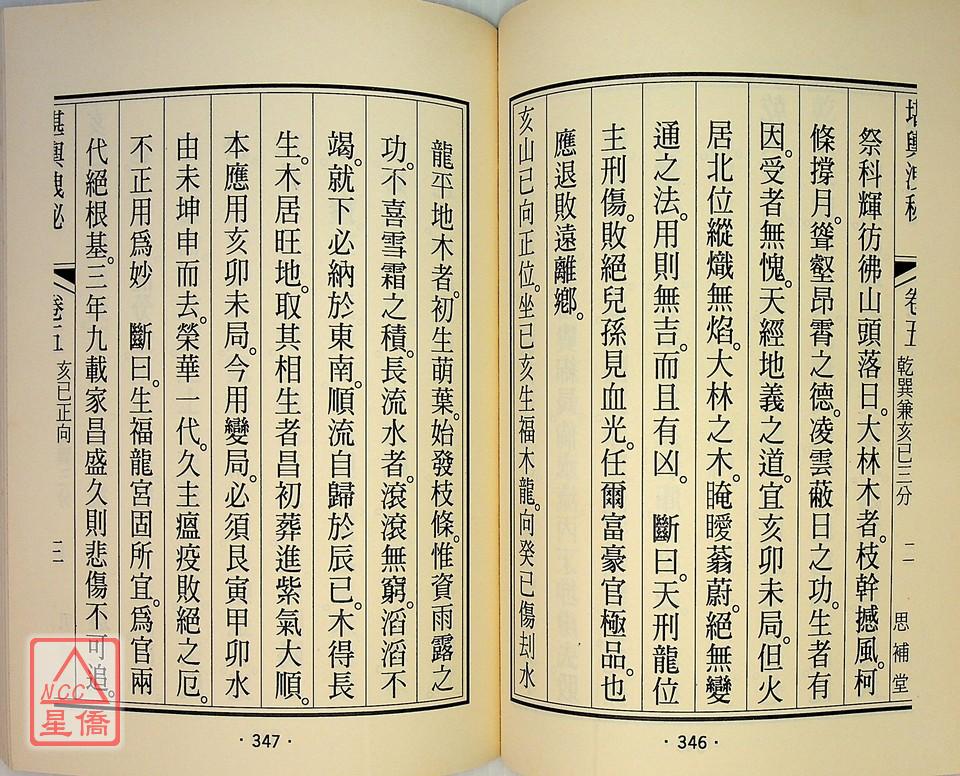 堪輿洩秘
卷五
乾巽兼亥巳三分
二
思補堂
祭科輝彷彿山頭落日。大林木者。枝幹撼風。柯
條撐月。聳壑昂霄之德。凌雲蔽日之功。生者有
因。受者無愧。天經地義之道。宜亥卯未局。但火
居北位縱熾無焰。大林之木。晻曖蓊蔚。絕無變
通之法。用則無吉。而且有凶。 斷曰天刑龍位
主刑傷。敗絕兒孫見血光。任爾富豪官極品。也
應退敗遠離鄉。
亥山巳向正位。坐己亥生福木龍。向癸巳傷刦水
·346·
龍平地木者。初生萌葉。始發枝條。惟資雨露之
功。不喜雪霜之積。長流水者。滾滾無窮。滔滔不
竭。就下必納於東南。順流自歸於辰巳。木得長
生。木居旺地。取其相生者昌初葬進紫氣大順。
本應用亥卯未局。今用變局。必須艮寅甲卯水
由未坤申而去。榮華一代。久主瘟疫敗絕之厄。
不正用爲妙 斷曰。生福龍宮固所宜。爲官兩
代絕根基。三年九載家昌盛久則悲傷不可追。
堪輿洩秘
卷五
亥巳正向
三
·347·
NCC
星僑